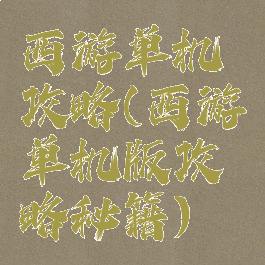 西游单机
攻略(西游
单机版攻
略秘籍)